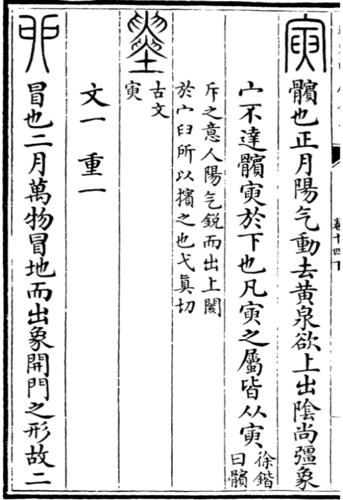 寅 髕也正月陽气動去黃泉欲上出陰尚彊象
宀不達髕寅於下也凡寅之屬皆从寅 徐鍇
曰髕
斥之意人陽气銳而出上閡
於宀臼所以擯之也弋眞切
古文
寅
文一 重一
卯 冒也二月萬物冒地而出象開門之形故二
卷十四下